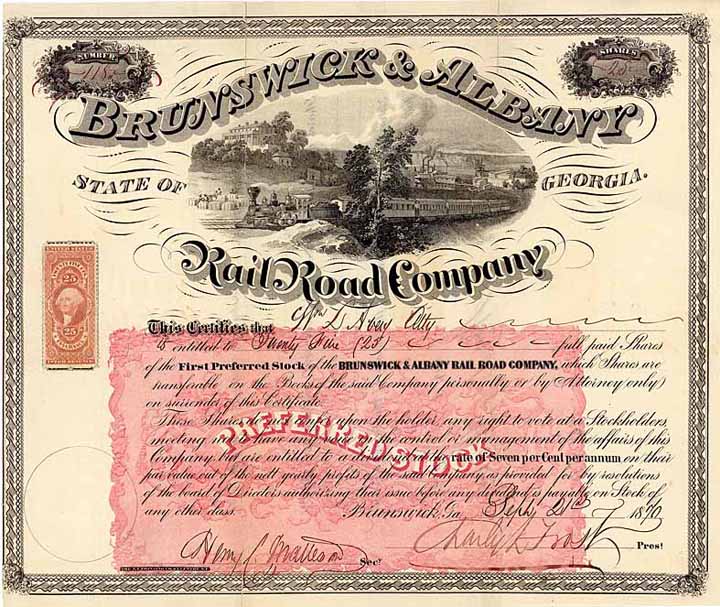 NUMBER
SHARES
25
BRUNSWICK & ALBANY
STATE OF GEORGIA.
Rail Road Company
25
25
This Certifies that Wm D Avery Atty
is entitled to Twenty Five (25) full paid Shares
of the First Preferred Stock of the BRUNSWICK & ALBANY RAIL ROAD COMPANY, which Shares are
transferable on the Books of the said Company personally or by Attorney only
on surrender of this Certificate.
These Shares do not confer upon the holder any right to vote at a Stockholders
meeting or to have any in the control or management of the affairs of this
Company, but are entitled to a dividend at the rate of Seven per Cent per annum on their
par value out of the nett yearly profits of the said Company as provided for by resolutions
of the board of Directors authorizing their issue before any dividend is payable on Stock of
any other class.
PREFERRED STOCK
Brunswick, Ga. Sept 21st 1870
Henry C. Secy
Charles L. Frost Prest